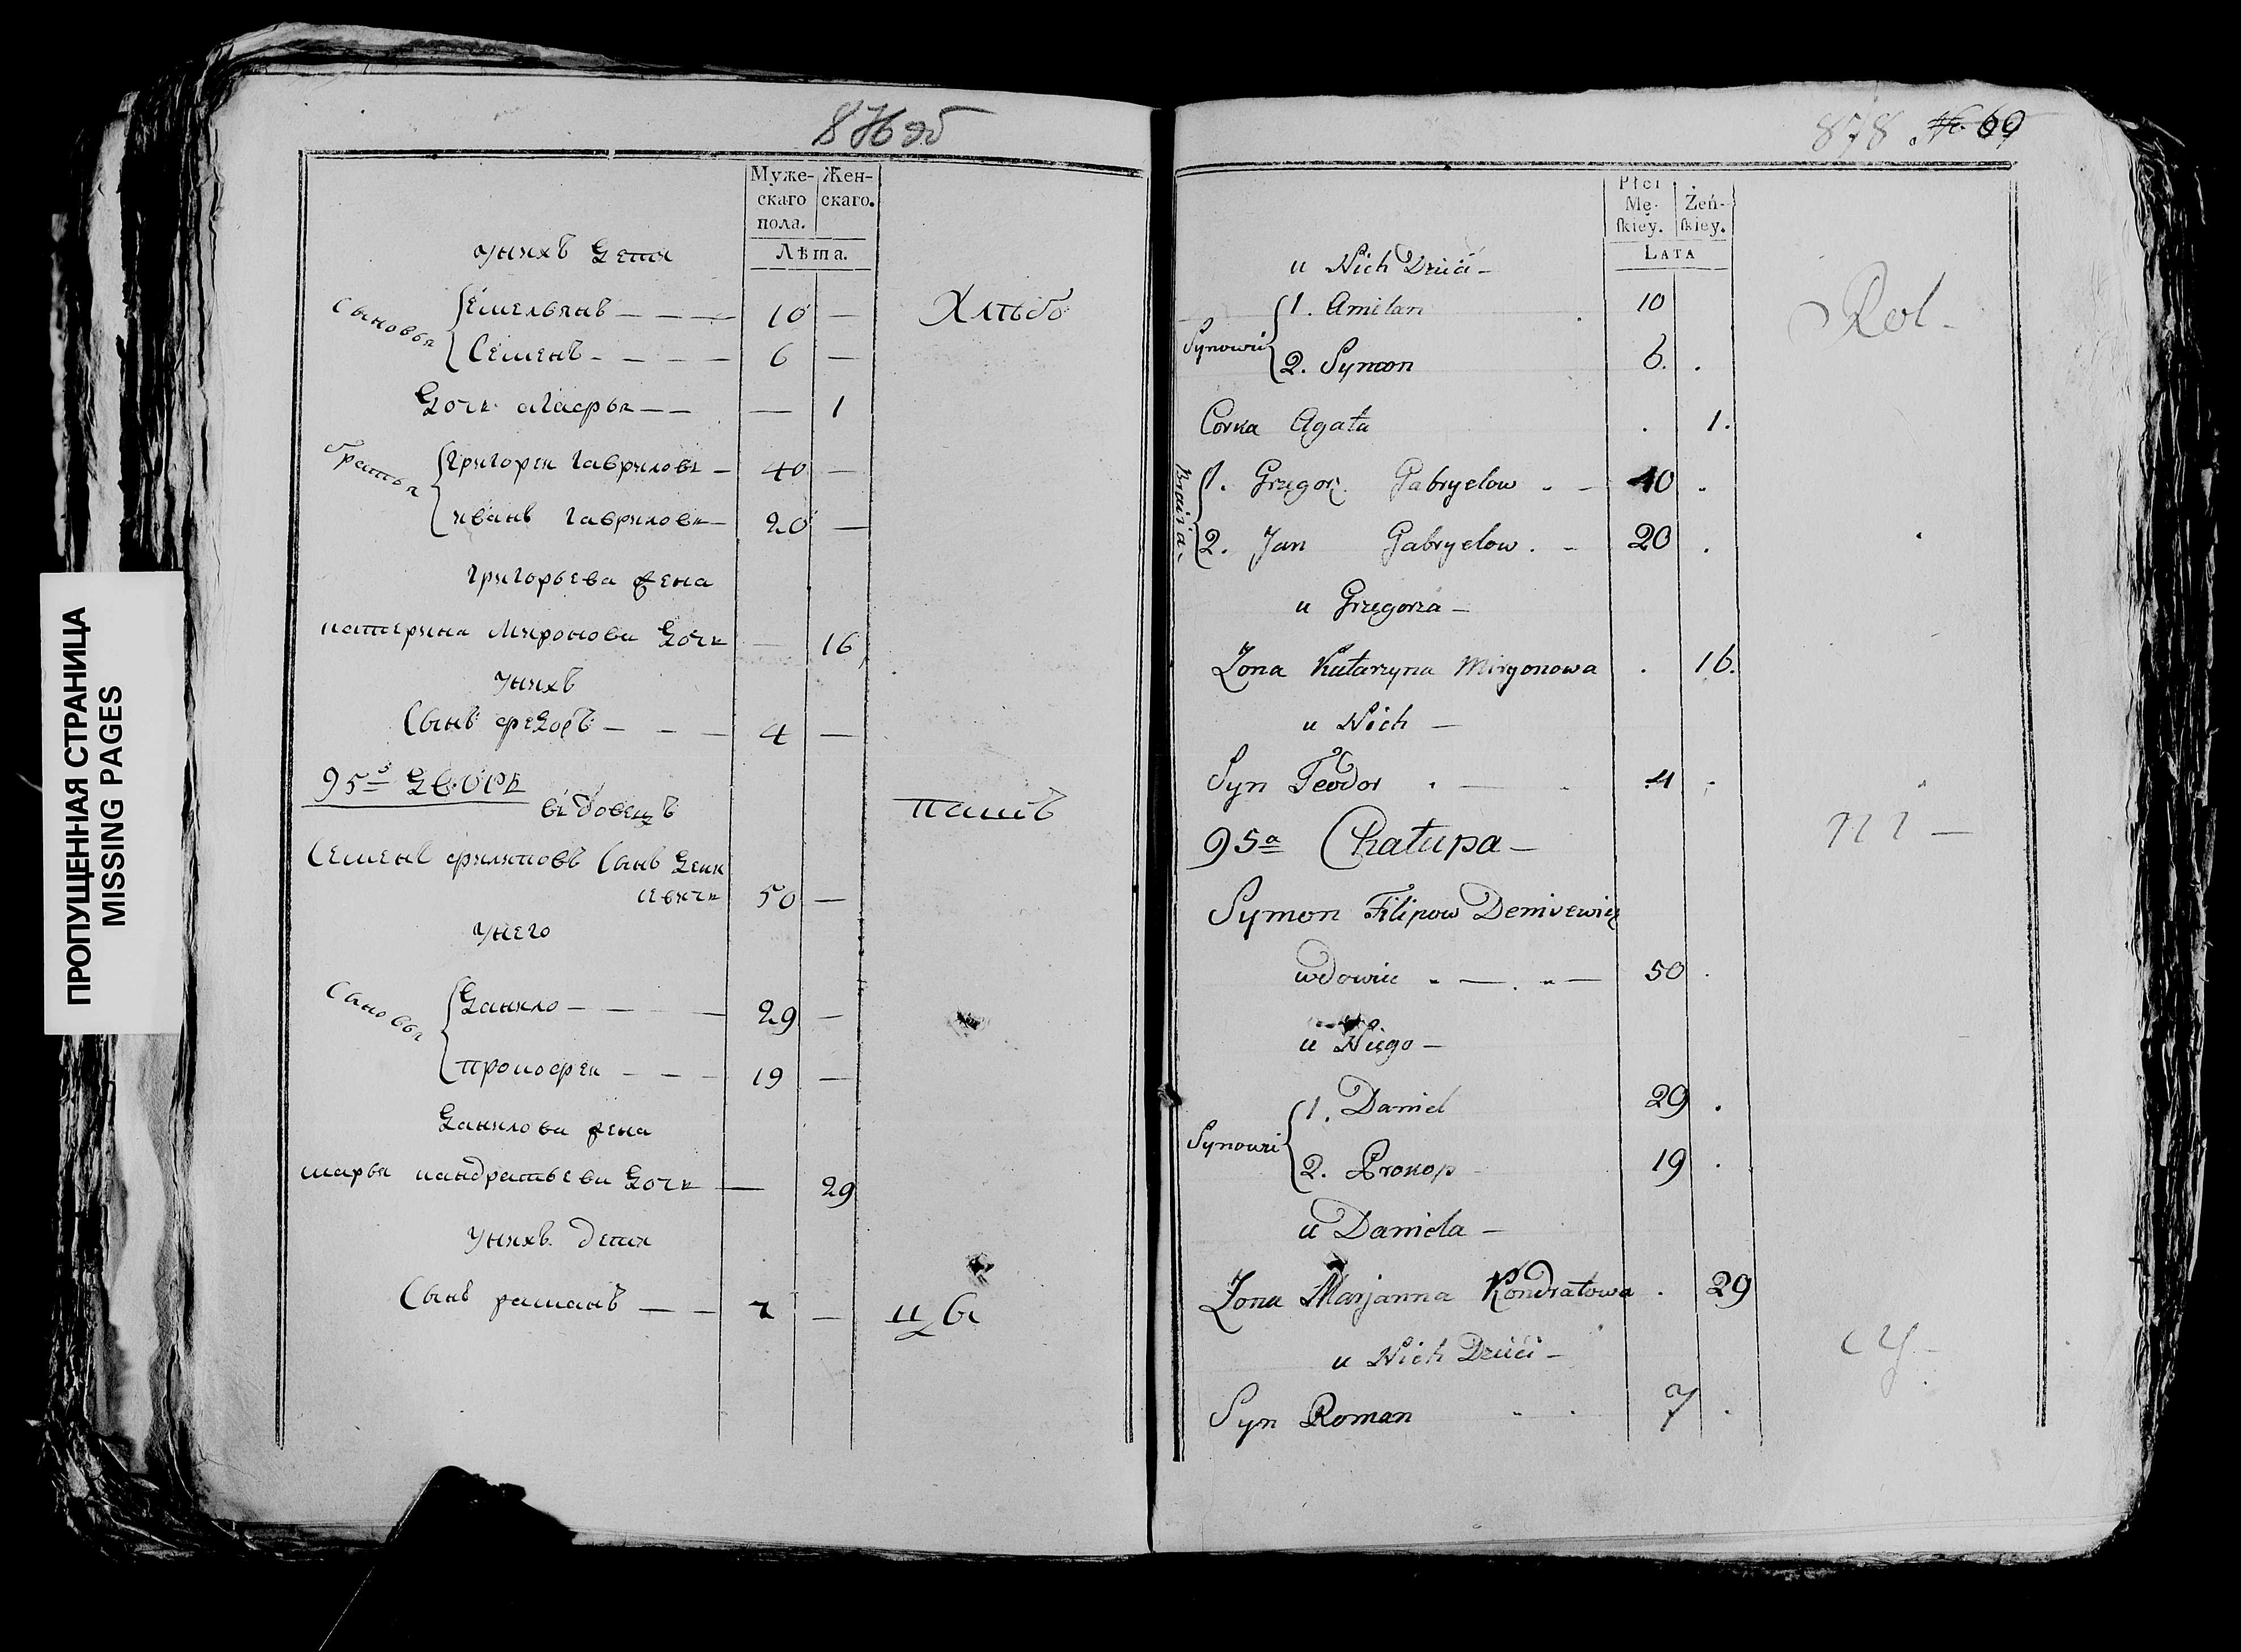 ПРОПУЩЕННАЯ СТРАНИЦА
MISSING PAGES
876 об
Муже-
скаго
пола.
Жен-
скаго.
Лѣта.
унихъ Дети
Сыновья
Емельянъ — — — 10 —
Хлѣбо
Семенъ - — — — 6 —
Дочь агафья — — — 1
братья
григореи гавриловъ — 40 —
иванъ гавриловъ — 20 —
григорьева жена
катерина миронова Дочь — 16
унихъ
Сынъ федоръ — — — 4 —
95 Дворъ
вдовецъ
пашъ
Семенъ филиповъ Сынъ Дени
севичь 50 —
унего
Сыновья
Данило — — — — 29 —
прокофеи — — — 19 —
Данилова жена
марья кандратьева Дочь — 29
унихъ дети
Сынъ раманъ — — 7 —
цы
878 N. 69
Płci
Mę-
skiey.
Żeń-
skiey.
LATA
u Nich Dzieci —
Rol -
Synowie
1. Amilan 10
2. Symon 6. .
Corka Agata . 1.
Bracia
1. Grzegorz Gabryelow . — 40 .
2. Jan Gabryelow . — 20 .
u Grzegorza —
Zona Katarzyna Miryonowa . 16.
u Nich —
Syn Teodor . — . 4 .
95a Chałupa —
ni —
Symon Filipow Denisewicz
wdowiec . — . — 50 .
u Niego —
Synowie
1. Daniel 29 .
2. Prokop 19 .
u Daniela —
Zona Marjanna Kondratowa . 29
u Nich Dzieci —
cy -
Syn Roman 7 .